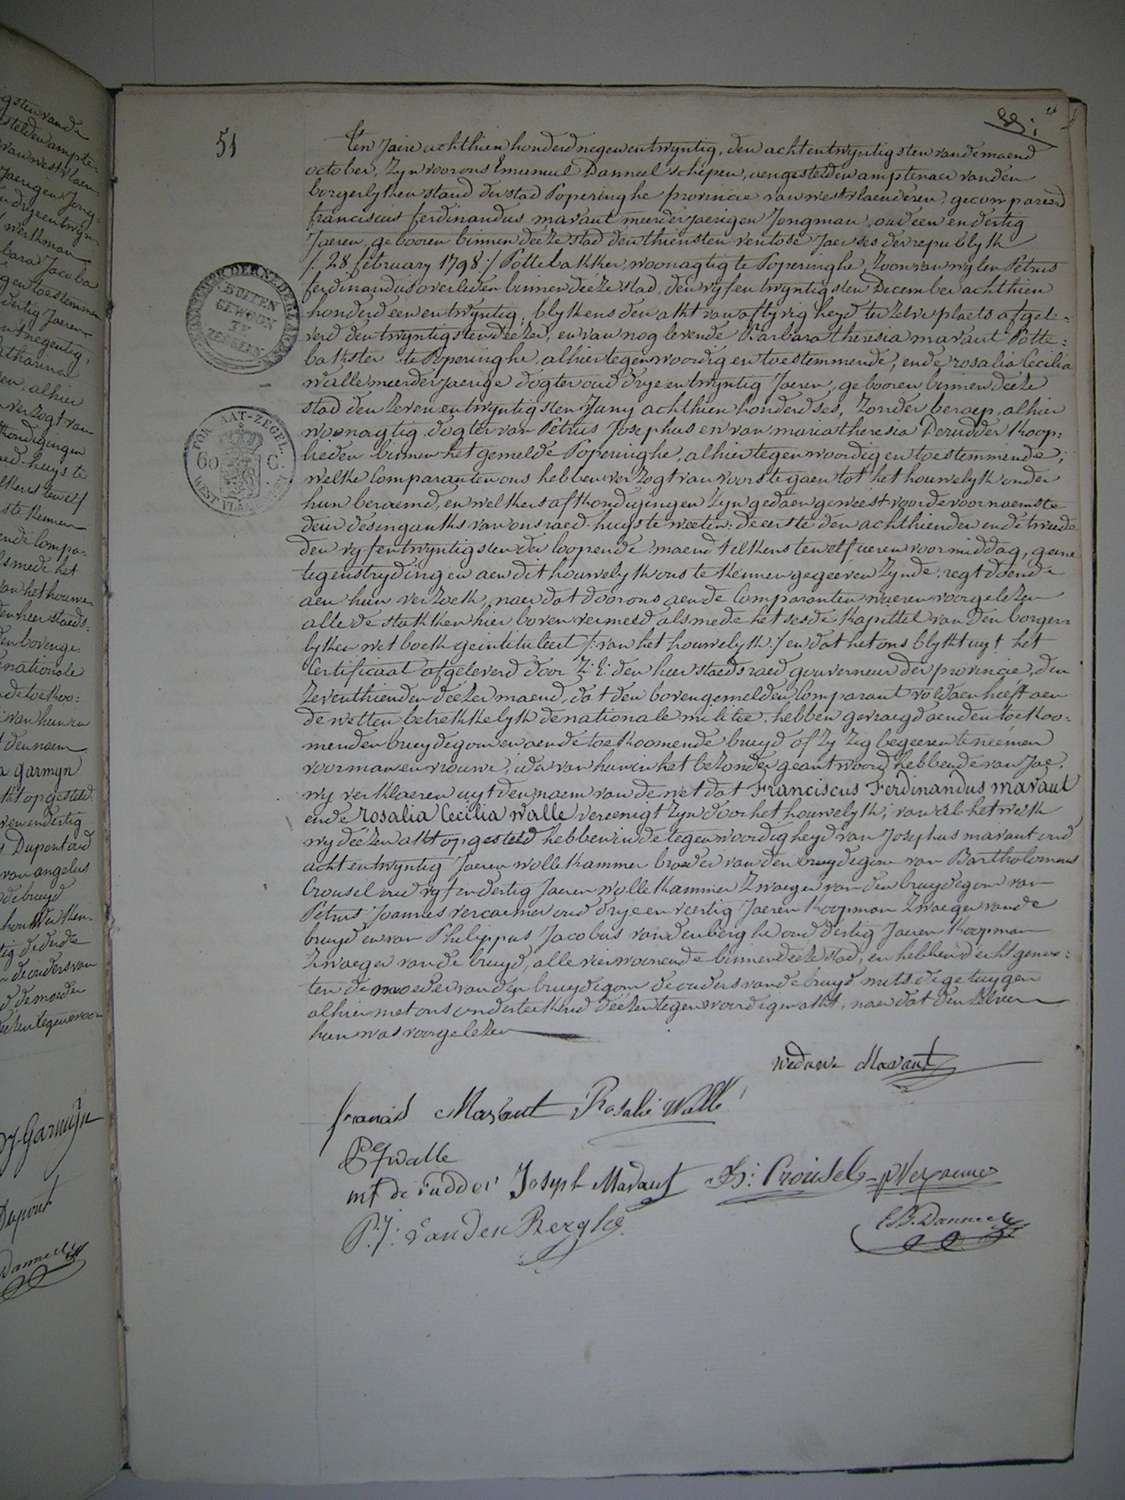 51
Ten Jaere achthien honderd negen en twyntig, den acht en twyntigsten van de maend
october, zyn voor ons Emanuel Danneel schepen, aengestelden amptenaer van den
borgerlyken stand der stad Poperinghe provincie van westvlaenderen, gecompareerd
franciscus ferdinandus maraut meerderjaerigen Jongman, oud een en dertig
Jaeren, gebooren binnen deeze stad den thiensten ventose Jaer ses der republyk
/: 28 february 1798 :/ Pottebakker, woonagtig te Poperinghe, zoon van wylen Petrus
ferdinandus overleden binnen deeze stad, den vyf en twyntigsten December achthien
honderd een en twyntig, blykens den akt van aflyvigheyd ter zelve plaets afgele-
verd den twyntigsten deezer, en van nog levende Barbara theresia maraut Potte-
bakster te Poperinghe, alhier tegenwoordig en toestemmende, ende rosalia Cecilia
walle meerderjaerige dogter oud drye en twyntig Jaeren, gebooren binnen deeze
stad den zeven en twyntigsten Juny achthien honderd ses, zonder beroep, alhier
woonagtig dogter van Petrus Josephus en van maria theresia Derudder koop-
lieden binnen het gemelde Poperinghe, alhier tegenwoordig en toestemmende;
welke Comparanten ons hebben verzogt van voorts te gaen tot het houwelyk onder
hun beraemd, en welkers afkondigingen zyn gedaen geweest voor de voornaemste
deur des inganks van ons raedhuys te weeten: de eerste den achthienden en de tweede
den vyf en twyntigsten der loopende maend telkens ten elf ueren voormiddag, geene
tegenstrydingen aen dit houwelyk ons te kennen gegeeven zynde, regt doende
aen hun verzoek, naer dat door ons aen de Comparanten waeren voorgelezen
alle de stukken hier boven vermeld als mede het sesde kapittel van den borger-
lyken wetboek geintituleert /: van het houwelyk :/ en dat het ons blykt uyt het
Certificaet afgeleverd door Z: E: den heer staedsraed gouverneur der provincie, den
zeventhienden deezer maend, dat den bovengemelden Comparant voldaen heeft aen
de wetten betrekkelyk de nationale militie, hebben gevraegd aen den toekoo-
menden bruydegom en aen de toekoomende bruyd of zy zig begeeren te neemen
voor man en vrouwe, ider van hunn het bezonder geantwoord hebbende van Jae,
wy verklaeren uyt den naem van de wet dat Franciscus Ferdinandus maraut
ende Rosalia Cecilia walle vereenigt zyn door het houwelyk; van al het welk
wy deezen akt opgesteld hebben in de tegenwoordigheyd van Josephus maraut oud
acht en twyntig Jaeren wollekammer broeder van den bruydegom van Bartholomeus
Crousel oud vyf en dertig Jaeren wollekammer zwaeger van den bruydegom van
Petrus Joannes vercaemer oud drye en veertig Jaeren koopman zwaeger van de
bruyd en van Philippus Jacobus vandenberghe oud dertig Jaeren koopman
zwaeger van de bruyd, alle vier woonende binnen deeze stad, en hebben d'echtgenoo-
ten de moeder van den bruydegom de ouders van de bruyd mits de getuygen
alhier met ons onderteekend deezen tegenwoordigen akt, naer dat den zelven
hun was voorgelezen
weduwe Maraut
francis Maraut Rosalie Walle
PJ walle
mt de rudder Joseph Maraut B: Crousel PJ Vercaemer
P:J: VandenBerghe EB. Danneel